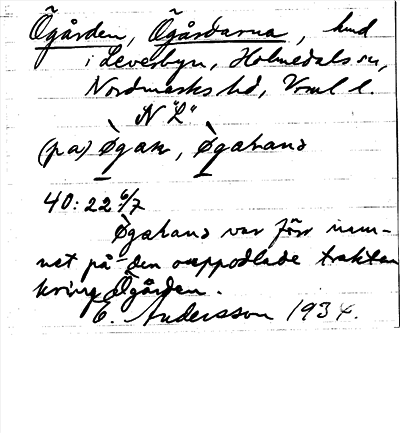 Ögården, Ögårdarna, hmd
i Levesbyn, Holmedals sn,
Nordmarks hd, Vrml l.
N "L"
(pa) øgaɴ, øgaʜaɴɔ
40:22 6/7
øgaʜaɴɔ var förr nam-
net på den ouppodlade trakten
kring Ögården.
E. Andersson 1934.